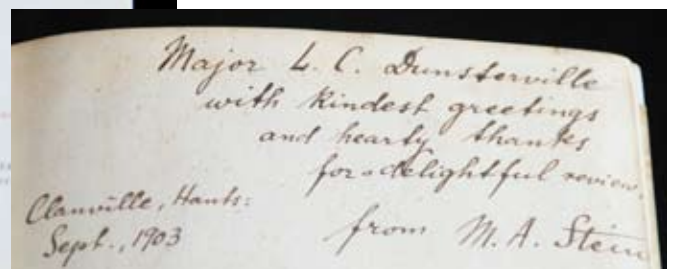 Major L. C. Dunsterville
with kindest greetings
and hearty thanks
for a delightful review.
Clanville, Hants:
Sept., 1903
from M. A. Stein